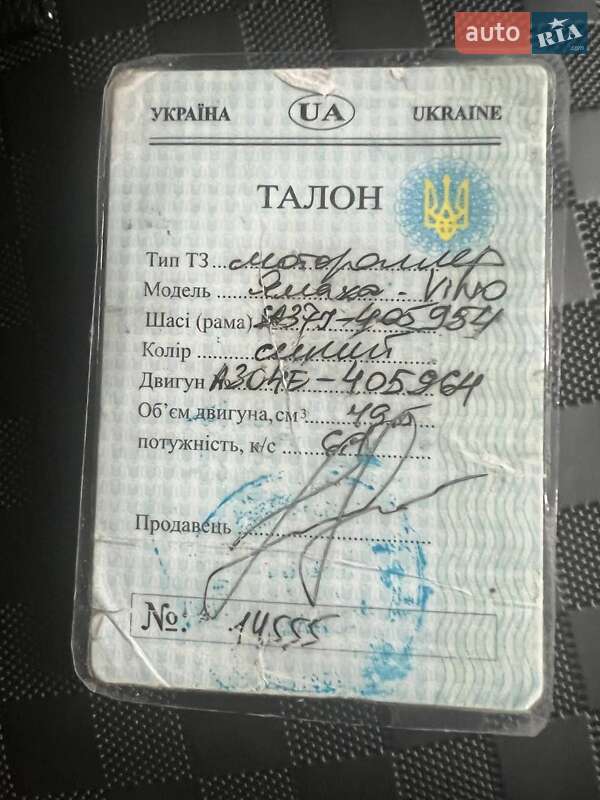 auto RIA .com
УКРАЇНА UA UKRAINE
ТАЛОН
Тип ТЗ мотороллер
Модель Ямаха - VINO
Шасі (рама) SA37J-405954
Колір синий
Двигун № A304E-405964
Об'єм двигуна, см³ 49,5
потужність, к/с
Продавець
№: 14555